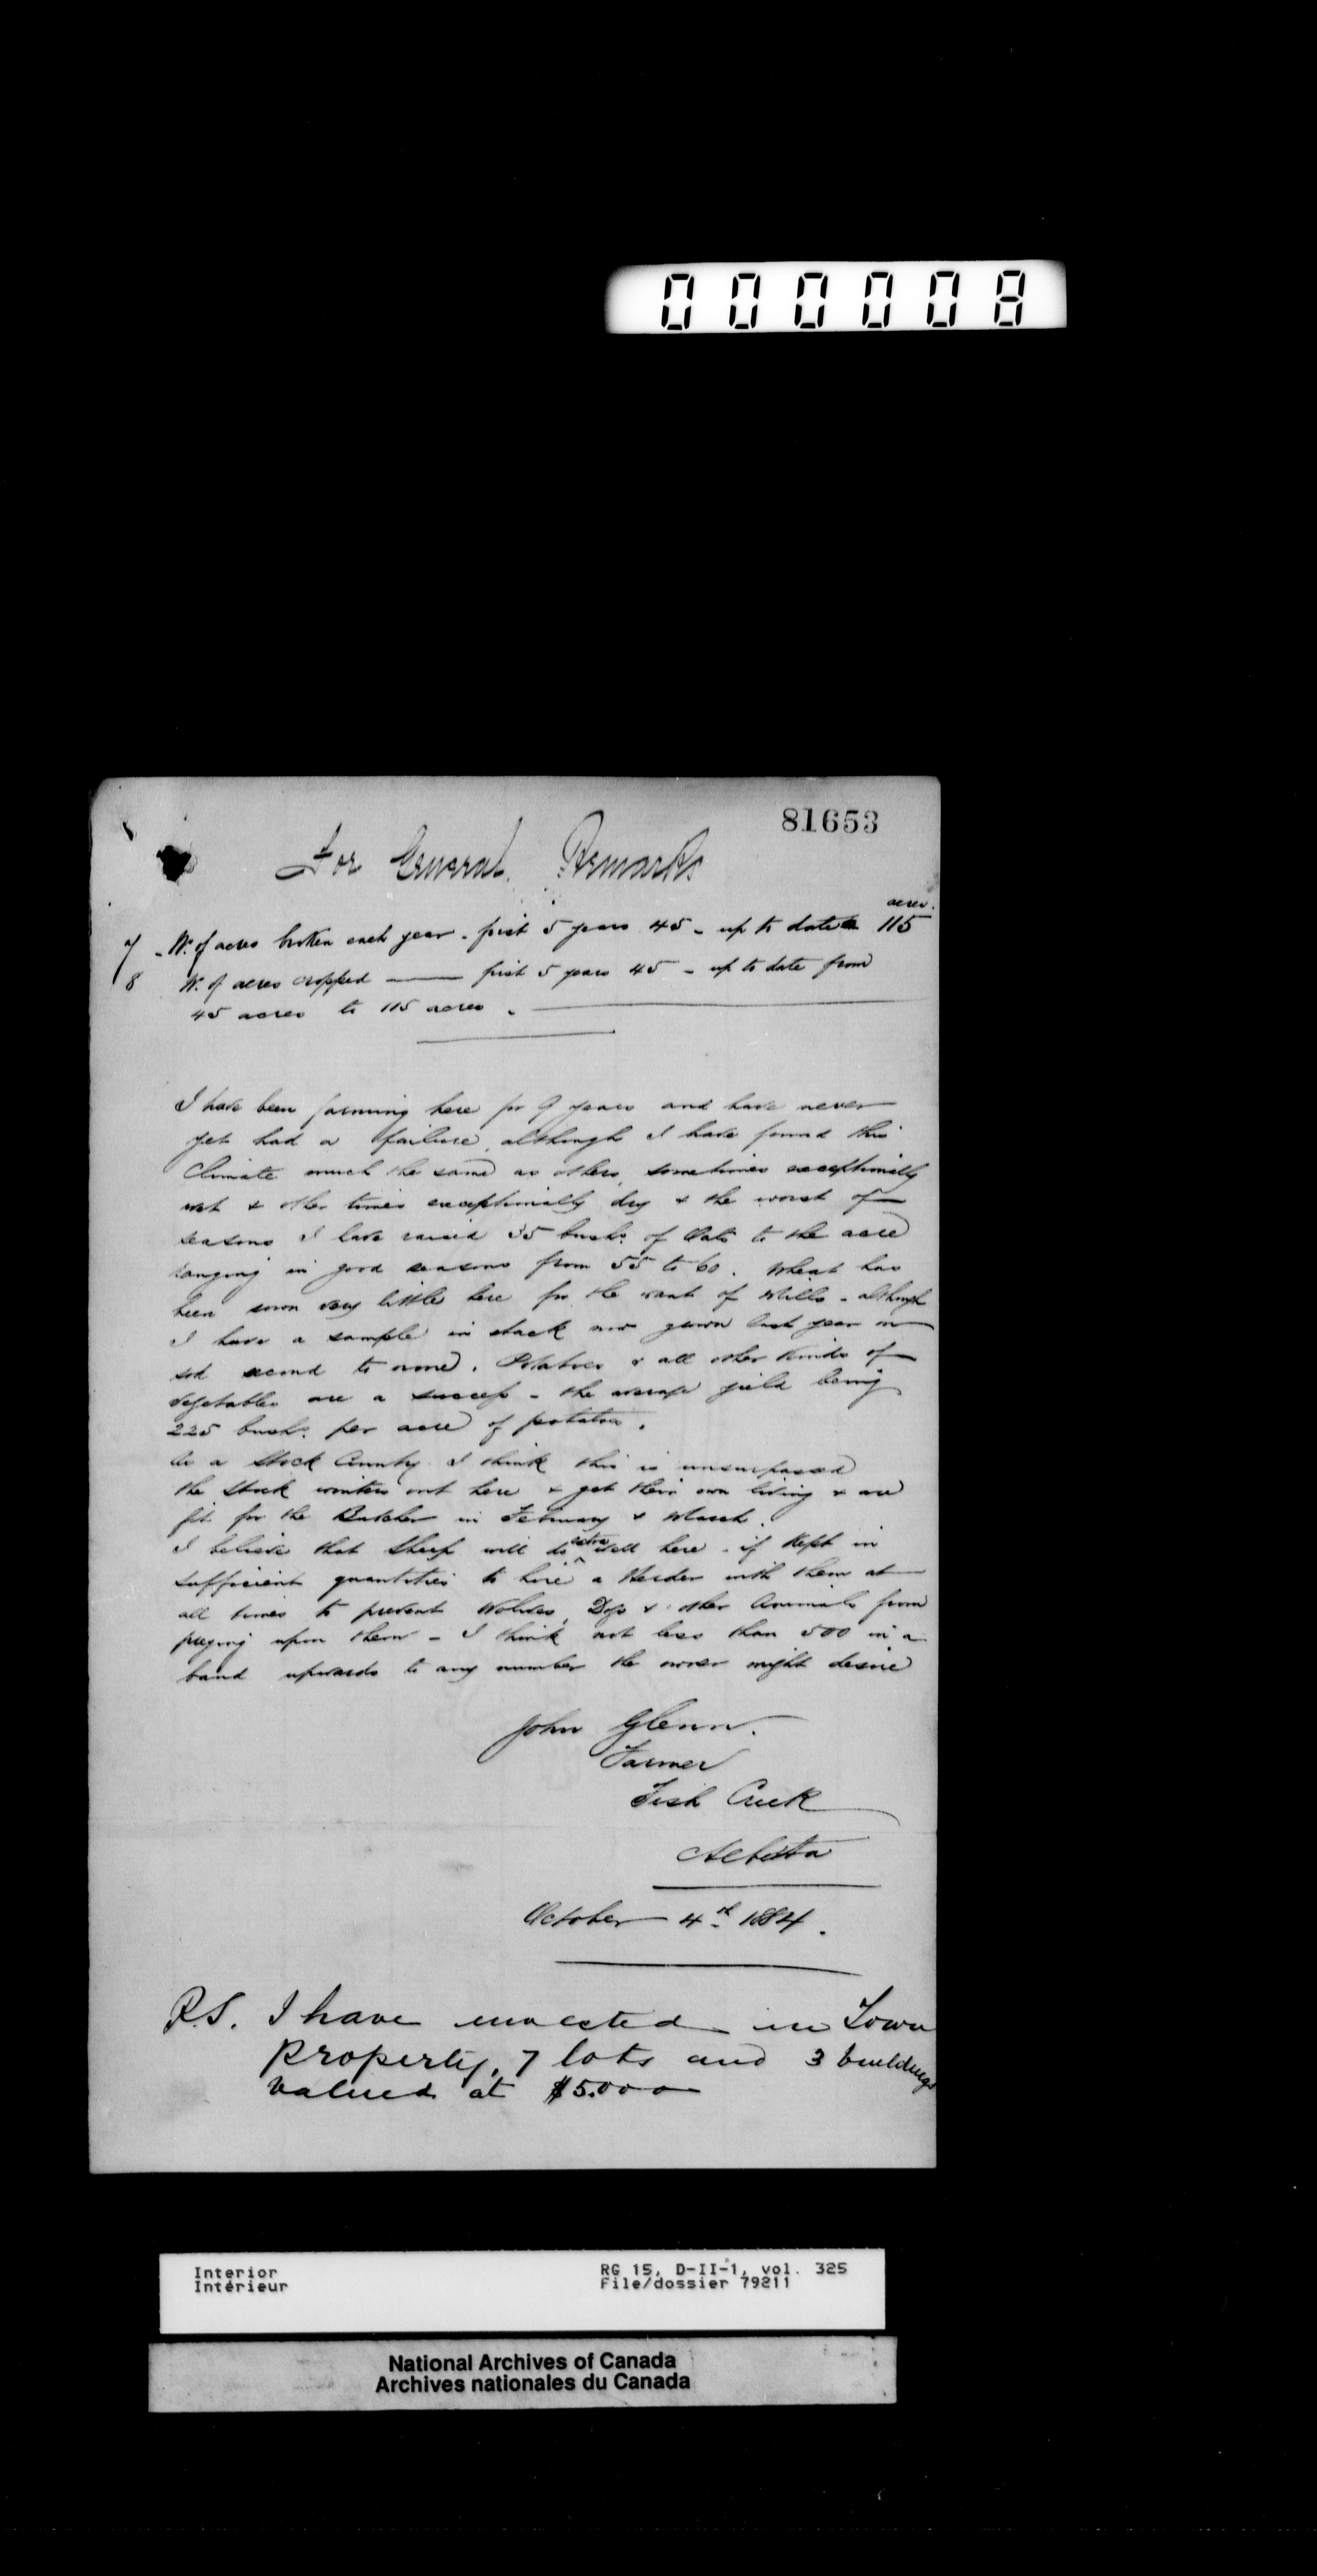 000008
81653
For General Remarks
acres.
7 - No. of acres broken each year - first 5 years 45 - up to date 115
8 No. of acres cropped —— first 5 years 45 - up to date from
45 acres to 115 acres.
I have been farming here for 9 years and have never
yet had a failure, although I have found this
Climate much the same as others, sometimes exceptionally
wet & other times exceptionally dry & the worst of
seasons I have raised 35 bush: of Oats to the acre
ranging in good seasons from 55 to 60. Wheat has
been sown very little here for the want of Mills - although
I have a sample in stack now grown last year on
sod second to none. Potatoes & all other kinds of
vegetables are a success - the average yield being
225 bush: per acre of potatoes.
As a Stock Country I think this is unsurpassed
the Stock winters out here & get their own living & are
fit for the Butcher in February & March.
I believe that Sheep will do extra well here - if kept in
sufficient quantities to hire a Herder with them at
all times to prevent Wolves, Dogs & other Animals from
preying upon them - I think not less than 500 in a
band upwards to any number the owner might desire
John Glenn.
Farmer
Fish Creek
Alberta
October 4th 1884.
P.S. I have invested in Town
Property, 7 lots and 3 buildings
valued at $5.000
Interior
Intérieur
RG 15, D-II-1, vol. 325
File/dossier 79211
National Archives of Canada
Archives nationales du Canada